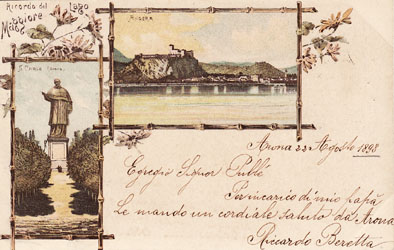 Ricordo del Lago
Maggiore
S. Carlo
Arona 22 Agosto 1898
Egregio Signor Pullè
Per incarico di mio papà
Le mando un cordiale saluto da Arona
Riccardo Beretta